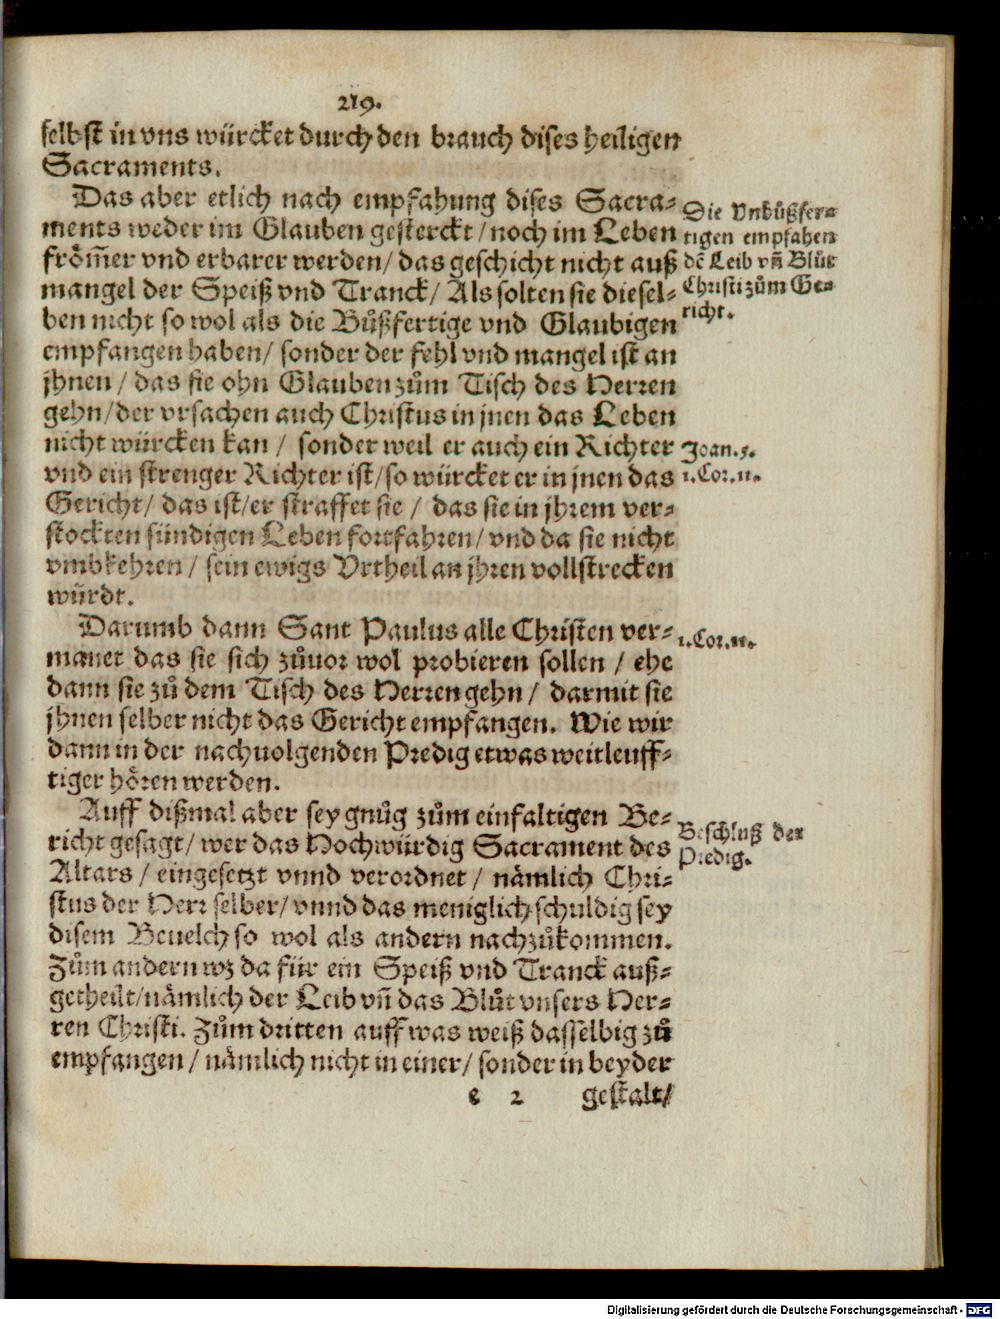 219.
selbst in vns würcket durch den brauch dises heiligen
Sacraments.
Das aber etlich nach empfahung dises Sacra-
ments weder im Glauben gesterckt / noch im Leben
frömer vnd erbarer werden / das geschicht nicht auß
mangel der Speiß vnd Tranck / Als solten sie diesel-
ben nicht so wol als die Bůßfertige vnd Glaubigen
empfangen haben / sonder der fehl vnd mangel ist an
jhnen / das sie ohn Glauben zům Tisch des Herren
gehn / der vrsachen auch Christus in jnen das Leben
nicht würcken kan / sonder weil er auch ein Richter
vnd ein strenger Richter ist / so würcket er in jnen das
Gericht / das ist / er straffet sie / das sie in jhrem ver-
stockten sündigen Leben fortfahren / vnd da sie nicht
vmbkehren / sein ewigs Vrtheil an jhren vollstrecken
würdt.
Darumb dann Sant Paulus alle Christen ver-
manet das sie sich zůuor wol probieren sollen / ehe
dann sie zů dem Tisch des Herren gehn / darmit sie
jhnen selber nicht das Gericht empfangen. Wie wir
dann in der nachuolgenden Predig etwas weitleuff-
tiger hören werden.
Auff dißmal aber sey gnůg zům einfaltigen Be-
richt gesagt / wer das Hochwürdig Sacrament des
Altars / eingesetzt vnnd verordnet / nämlich Chri-
stus der Herr selber / vnnd das meniglich schuldig sey
disem Beuelch so wol als andern nachzůkommen.
Zům andern wz da für ein Speiß vnd Tranck auß-
getheilt / nämlich der Leib vñ das Blůt vnsers Her-
ren Christi. Zům dritten auff was weiß dasselbig zů
empfangen / nämlich nicht in einer / sonder in beyder
e 2 gestalt /
Die Vnbůßfer-
tigen empfahen
dẽ Leib vñ Blůt
Christi zům Ge-
richt.
Joan. 5.
1. Cor. 11.
1. Cor. 11.
Beschluß der
Predig.
Digitalisierung gefördert durch die Deutsche Forschungsgemeinschaft - DFG